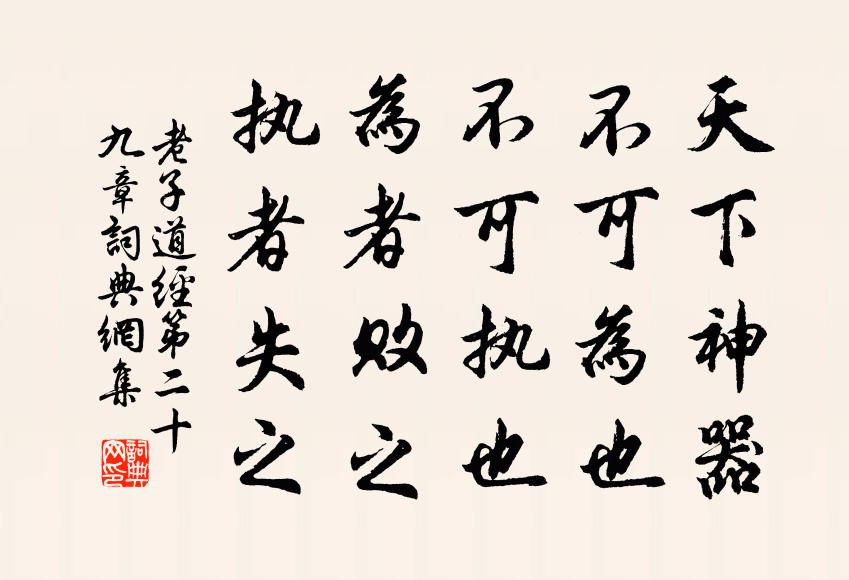 天下神器
不可為也
不可执也
為者败之
执者失之
老子道經第二十
九章詞典網集
詞典网印